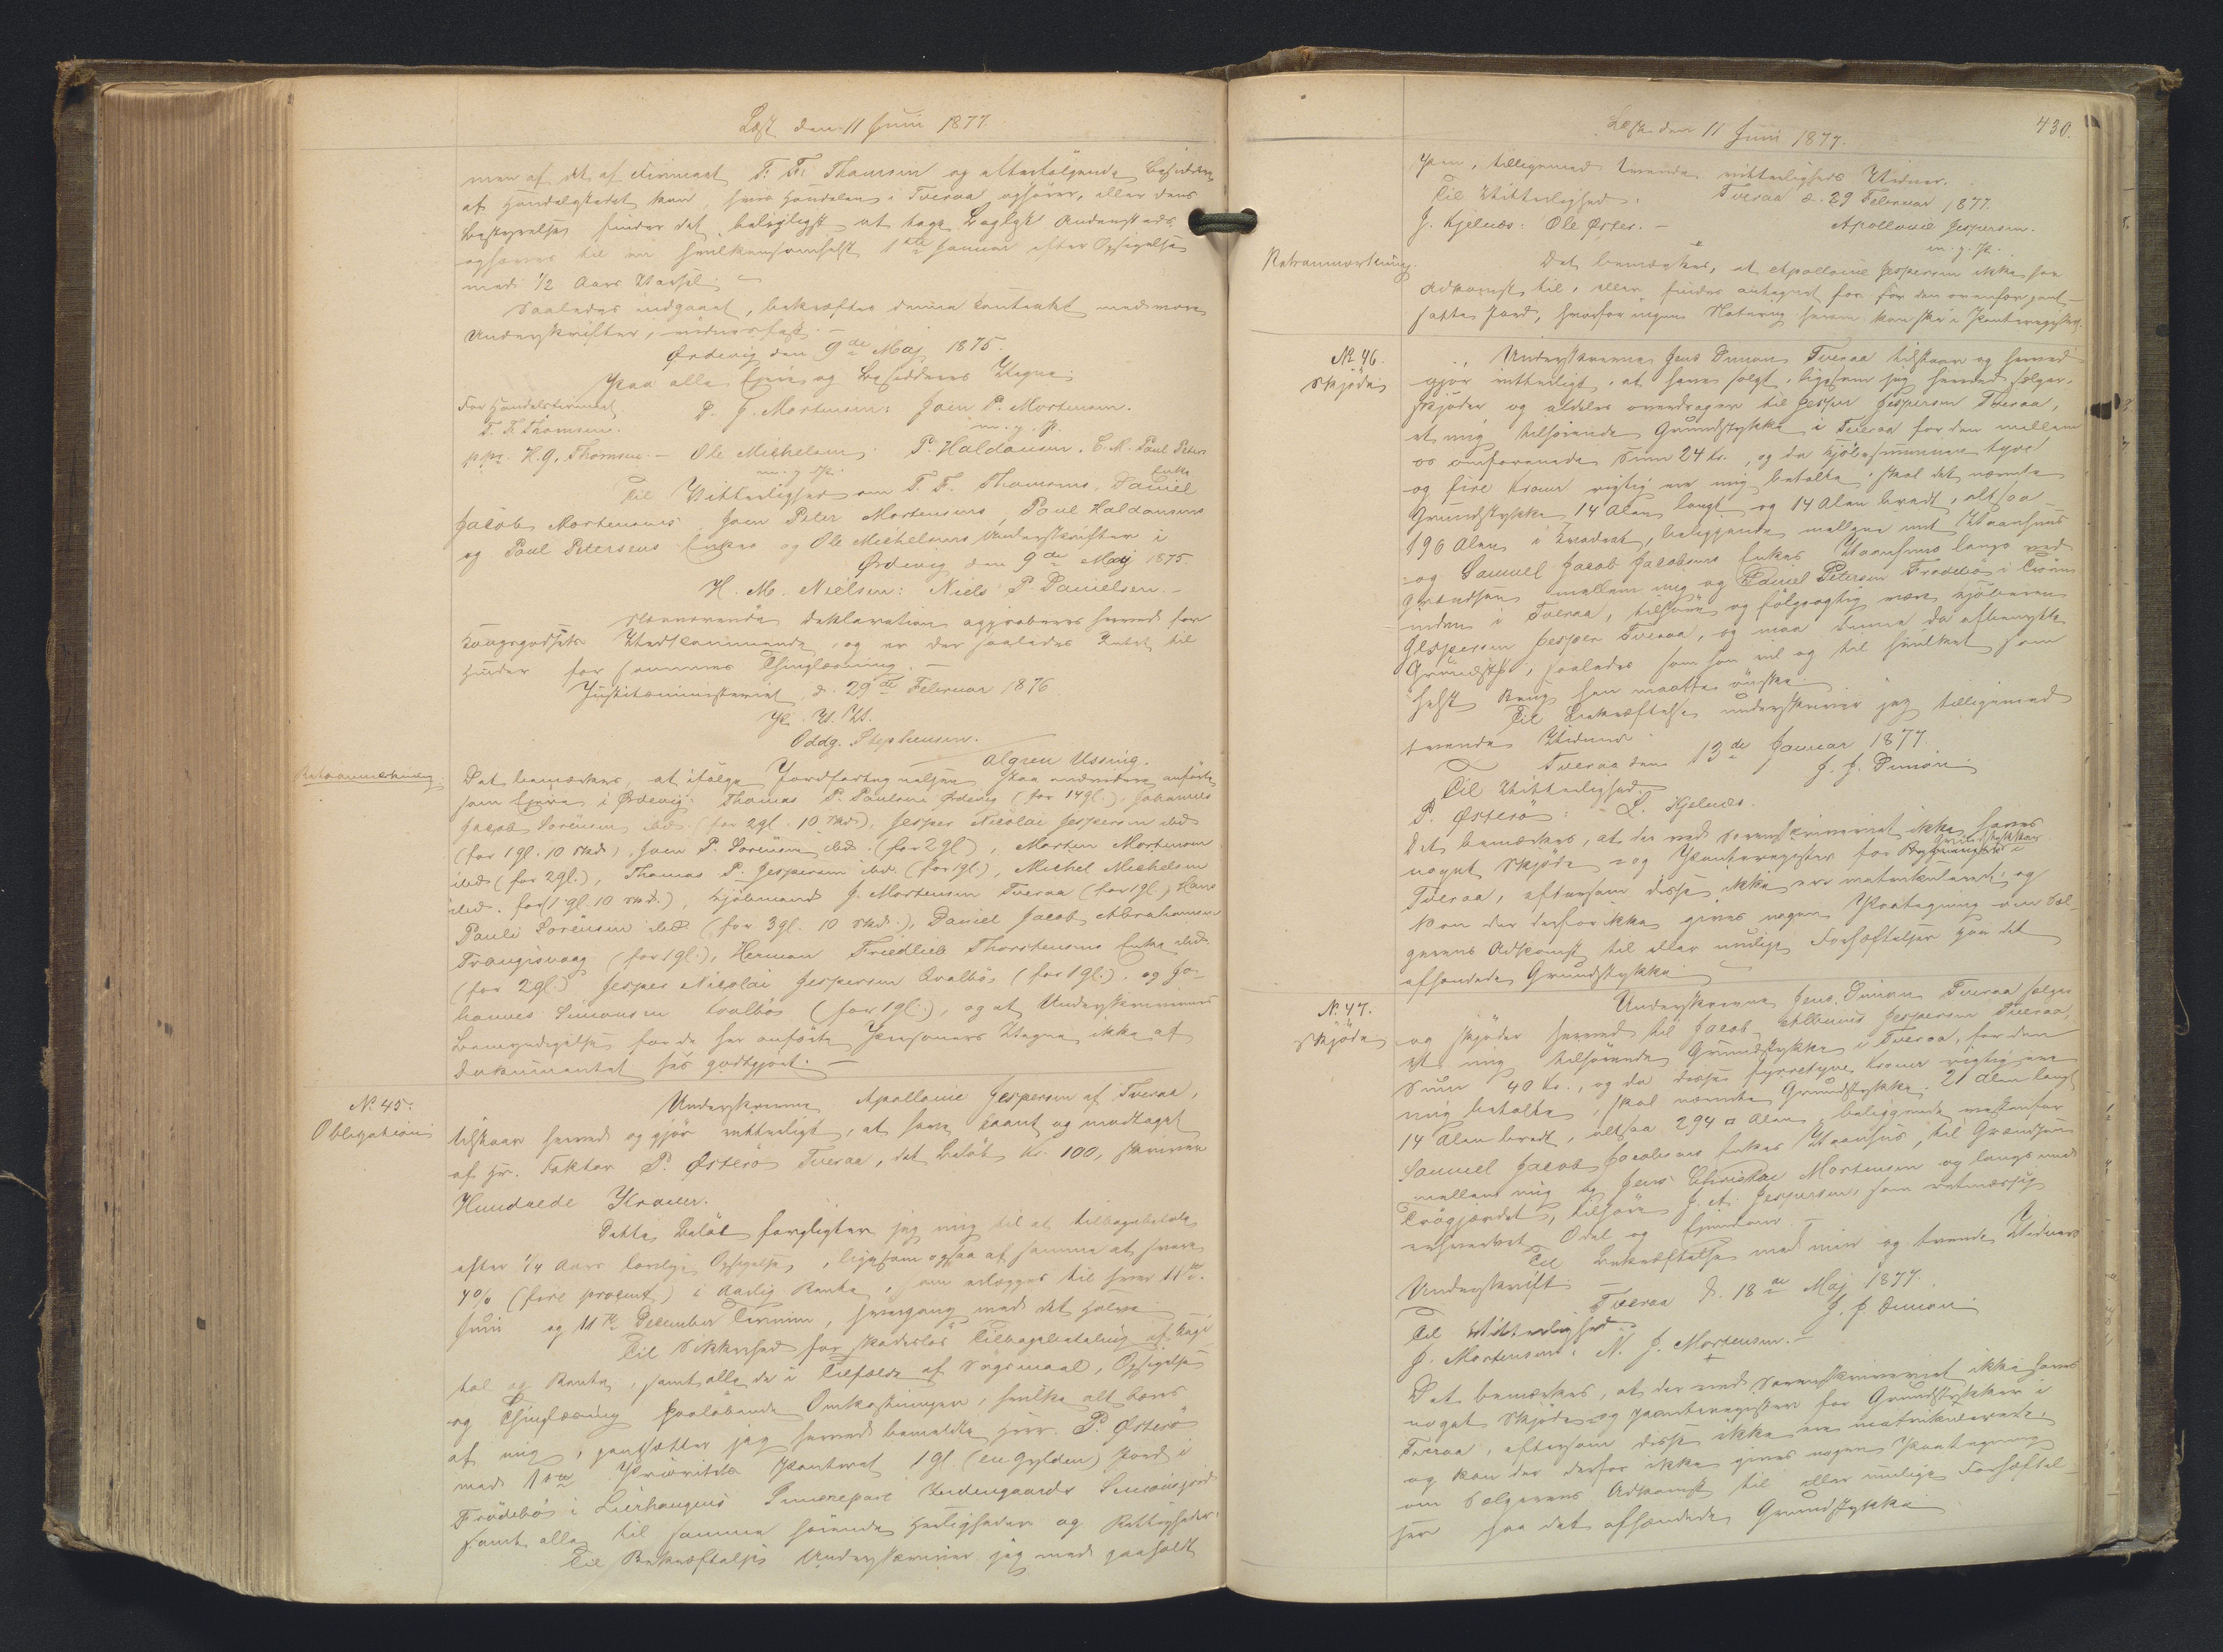 Læst den 11 Juni 1877.
men af det af Firmaet T. F. Thomsen og efterfølgende Besiddere
af Handelsstedet kan, hvis Handelen i Tveraa ophører, eller dens
Bestyrelse finder det beleiligst at tage Baglygt Andensteds
ophæves til en hvilkensomhelst 1ste Januar efter Opsigelse
med 1/2 Aars Varsel.
Saaledes indgaaet, bekræftes denne Contrakt med vore
Underskrifter, vidnesfast.
Ørdevig den 9de Maj 1875.
Paa alle Ejere og Besidderes Vegne:
For Handelsfirmaet
T. F. Thomsen.
D. J. Mortensen: Joen P. Mortensen.
m. g. P.
p.pr. H. G. Thomsen. — Ole Michelsen. P. Haldansen. E. M. Poul Peters
m. g. P. Enke
Til Vitterlighed om T. F. Thomsens, Daniel
Jacob Mortensens, Joen Peter Mortensens, Poul Haldansens
og Poul Petersens Enkes og Ole Michelsens Underskrifter i
Ørdevig den 9de Maj 1875.
H. M. Nielsen: Niels P. Danielsen. —
Nærværende Deklaration approberes herved for
Kongsgodsets Vedkommende, og er der saaledes Intet til
Hinder for sammes Thinglæsning. —
Justitsministeriet, d. 29de Februar 1876
P. M. V.
Oddg. Stephensen.
Algreen Ussing.
Retsanmerkning:
Det bemærkes, at ifølge Jordfortegnelsen staa endvidere anførte
som Ejere i Ørdevig: Thomas P. Poulsen Ørdevig (for 14 gl.), Johannes
Jacob Sørensen ibd. (for 2 gl. 10 skd.), Jesper Nicolai Jespersen ibd
(for 1 gl. 10 Skd.), Joen P. Sørensen ibd. (for 2 gl), Morten Mortensen
ibd. (for 2 gl.), Thomas P. Jespersen ibd. (for 1 gl), Michel Michelsen
ibd. for (1 gl. 10 skd.), Kjøbmand J. Mortensen Tveraa (for 1 gl.) Hans
Pauli Sørensen ibd. (for 3 gl. 10 Skd.), Daniel Jacob Abrahamsen
Trangisvaag (for 1 gl.), Herman Friedlieb Thorstensens Enke ibd.
(for 2 gl.) Jesper Nicolai Jespersen Qvalbø, (for 1 gl.). og Jo-
hannes Simonsen Qvalbø (for 1 gl.), og at Underskrivernes
Bemyndigelse for de her anførte Personers Vegne ikke af
Dokumentet ses godtgjort. —
No. 45.
Obligation
Underskrevne Apollonie Jespersen af Tveraa,
tilstaar herved og gjør vitterligt, at have laant og modtaget
af Hr. Faktor P. Østerø Tveraa, det Beløb Kr. 100, skriver
Hundrede Kroner.
Dette Beløb forpligter jeg mig til at tilbagebetale
efter 1/4 Aars lovlig Opsigelse, ligesom ogsaa af samme at svare
4% (fire procent) i Aarlig Rente, som erlægges til hver 11te
Juni og 11te December Termin, hvergang med det halve.
Til Sikkerhed for skadesløs Tilbagebetaling af Capi-
tal og Rente, samt alle de i Tilfælde af Søgsmaal, Opsigelse
og Thinglæsning paaløbende Omkostninger, hvilke alt bæres
af mig, pantsætter jeg herved bemeldte Herr. P. Østerø
med 1ste Prioritets Panteret 1 gl. (en Gylden) Jord i
Frodebø i Lierhaugens Prinsepart Vedengaards Simonsjord
samt alle til samme hørende Herligheder og Rettigheder.
Til Bekræftelse Underskriver jeg med paaholdt
Læst den 11 Juni 1877.
430.
Pen, tilligemed tvende vitterligheds Vidner.
Til Vitterlighed: Tveraa d. 29 Februar 1877.
J. Kjelnæs: Ole Østerø. — Apollonie Jespersen.
m. g. P.
Retsanmærkning.
Det bemærkes, at Apollonie Jespersen ikke har
Adkomst til, eller findes antegnet for den ovenfor pant-
satte Jord, hvorfor ingen Notering herom kan ske i Panteregistret.
No 46.
Skjøde
Underskrevne Jens Dimon Tveraa tilstaar og herved
gjør vitterligt, at have solgt, ligesom jeg herved sælger,
skjøder og aldeles overdrager til Jesper Jespersen Tveraa,
et mig tilhørende Grundstykke i Tveraa for den mellem
os omforenede Sum 24 Kr., og da Kjøbesummen tyve
og fire Kroner rigtig er mig betalte, skal det nævnte
Grundstykke 14 Alen langt og 14 Alen bredt, altsaa
196 Alen i Kvadrat, beliggende mellem mit Vaanhuus
og Samuel Jacob Jacobsens Enkes Vaanhuus langs ved
Grændsen mellem mig og Daniel Petersen Frodebø i Trøen
inden i Tveraa, tilhøre og følgagtig være Kjøberen
Jespersen Jesper Tveraa, og maa denne da afbenytte
Grundstk., saaledes som han vil og til hvilket som
helst Brug han maatte ønske.
Til Bekræftelse underskriver jeg tilligemed
tvende Vidner.
Tveraa den 13de Januar 1877.
J. J. Dimon
Til Vitterlighed:
P. Østerø: — L. Kjelnæs.
Det bemærkes, at der ved Sorenskriveriet ikke haves
noget Skjøde- og Panteregister for Grundstykker i
Tveraa, eftersom disse ikke ere matrikulerede; og
kan der derfor ikke gives nogen Paategning om Sæl-
gerens Adkomst til eller mulige Forhæftelser paa det
afhændede Grundstykke.
No. 47.
Skjøde
Underskrevne Jens Dimon Tveraa sælger
og skjøder herved til Jacob Albinus Jespersen Tveraa,
et mig tilhørende Grundstykke i Tveraa, for den
Sum 40 Kr., og da disse fyrretyve Kroner rigtig ere
mig betalte, skal nævnte Grundstykke 21 Alen langt
14 Alen bredt, altsaa 294 □ Alen, beliggende vestenfor
Samuel Jacob Jacobsens Enkes Vaanhus, til Grændsen
mellem mig og Jens Christian Mortensen og langs med
Trøgjærdet, tilhøre J. A. Jespersen, som retmæssig
erhvervet Odel og Ejendom. —
Til Bekræftelse med min og tvende Vidners
Underskrift
Tveraa d. 18de Maj 1877.
J. J. Dimon
Til Vitterlighed:
J. Mortensen: N. J. Mortensen. —
Det bemærkes, at der ved Sorenskriveriet ikke haves
noget Skjøde- og Panteregister for Grundstykker i
Tveraa, eftersom disse ikke ere matrikulerede,
og kan der derfor ikke gives nogen Paategning
om Sælgerens Adkomst til eller mulige Forhæftel-
ser paa det afhændede Grundstykke